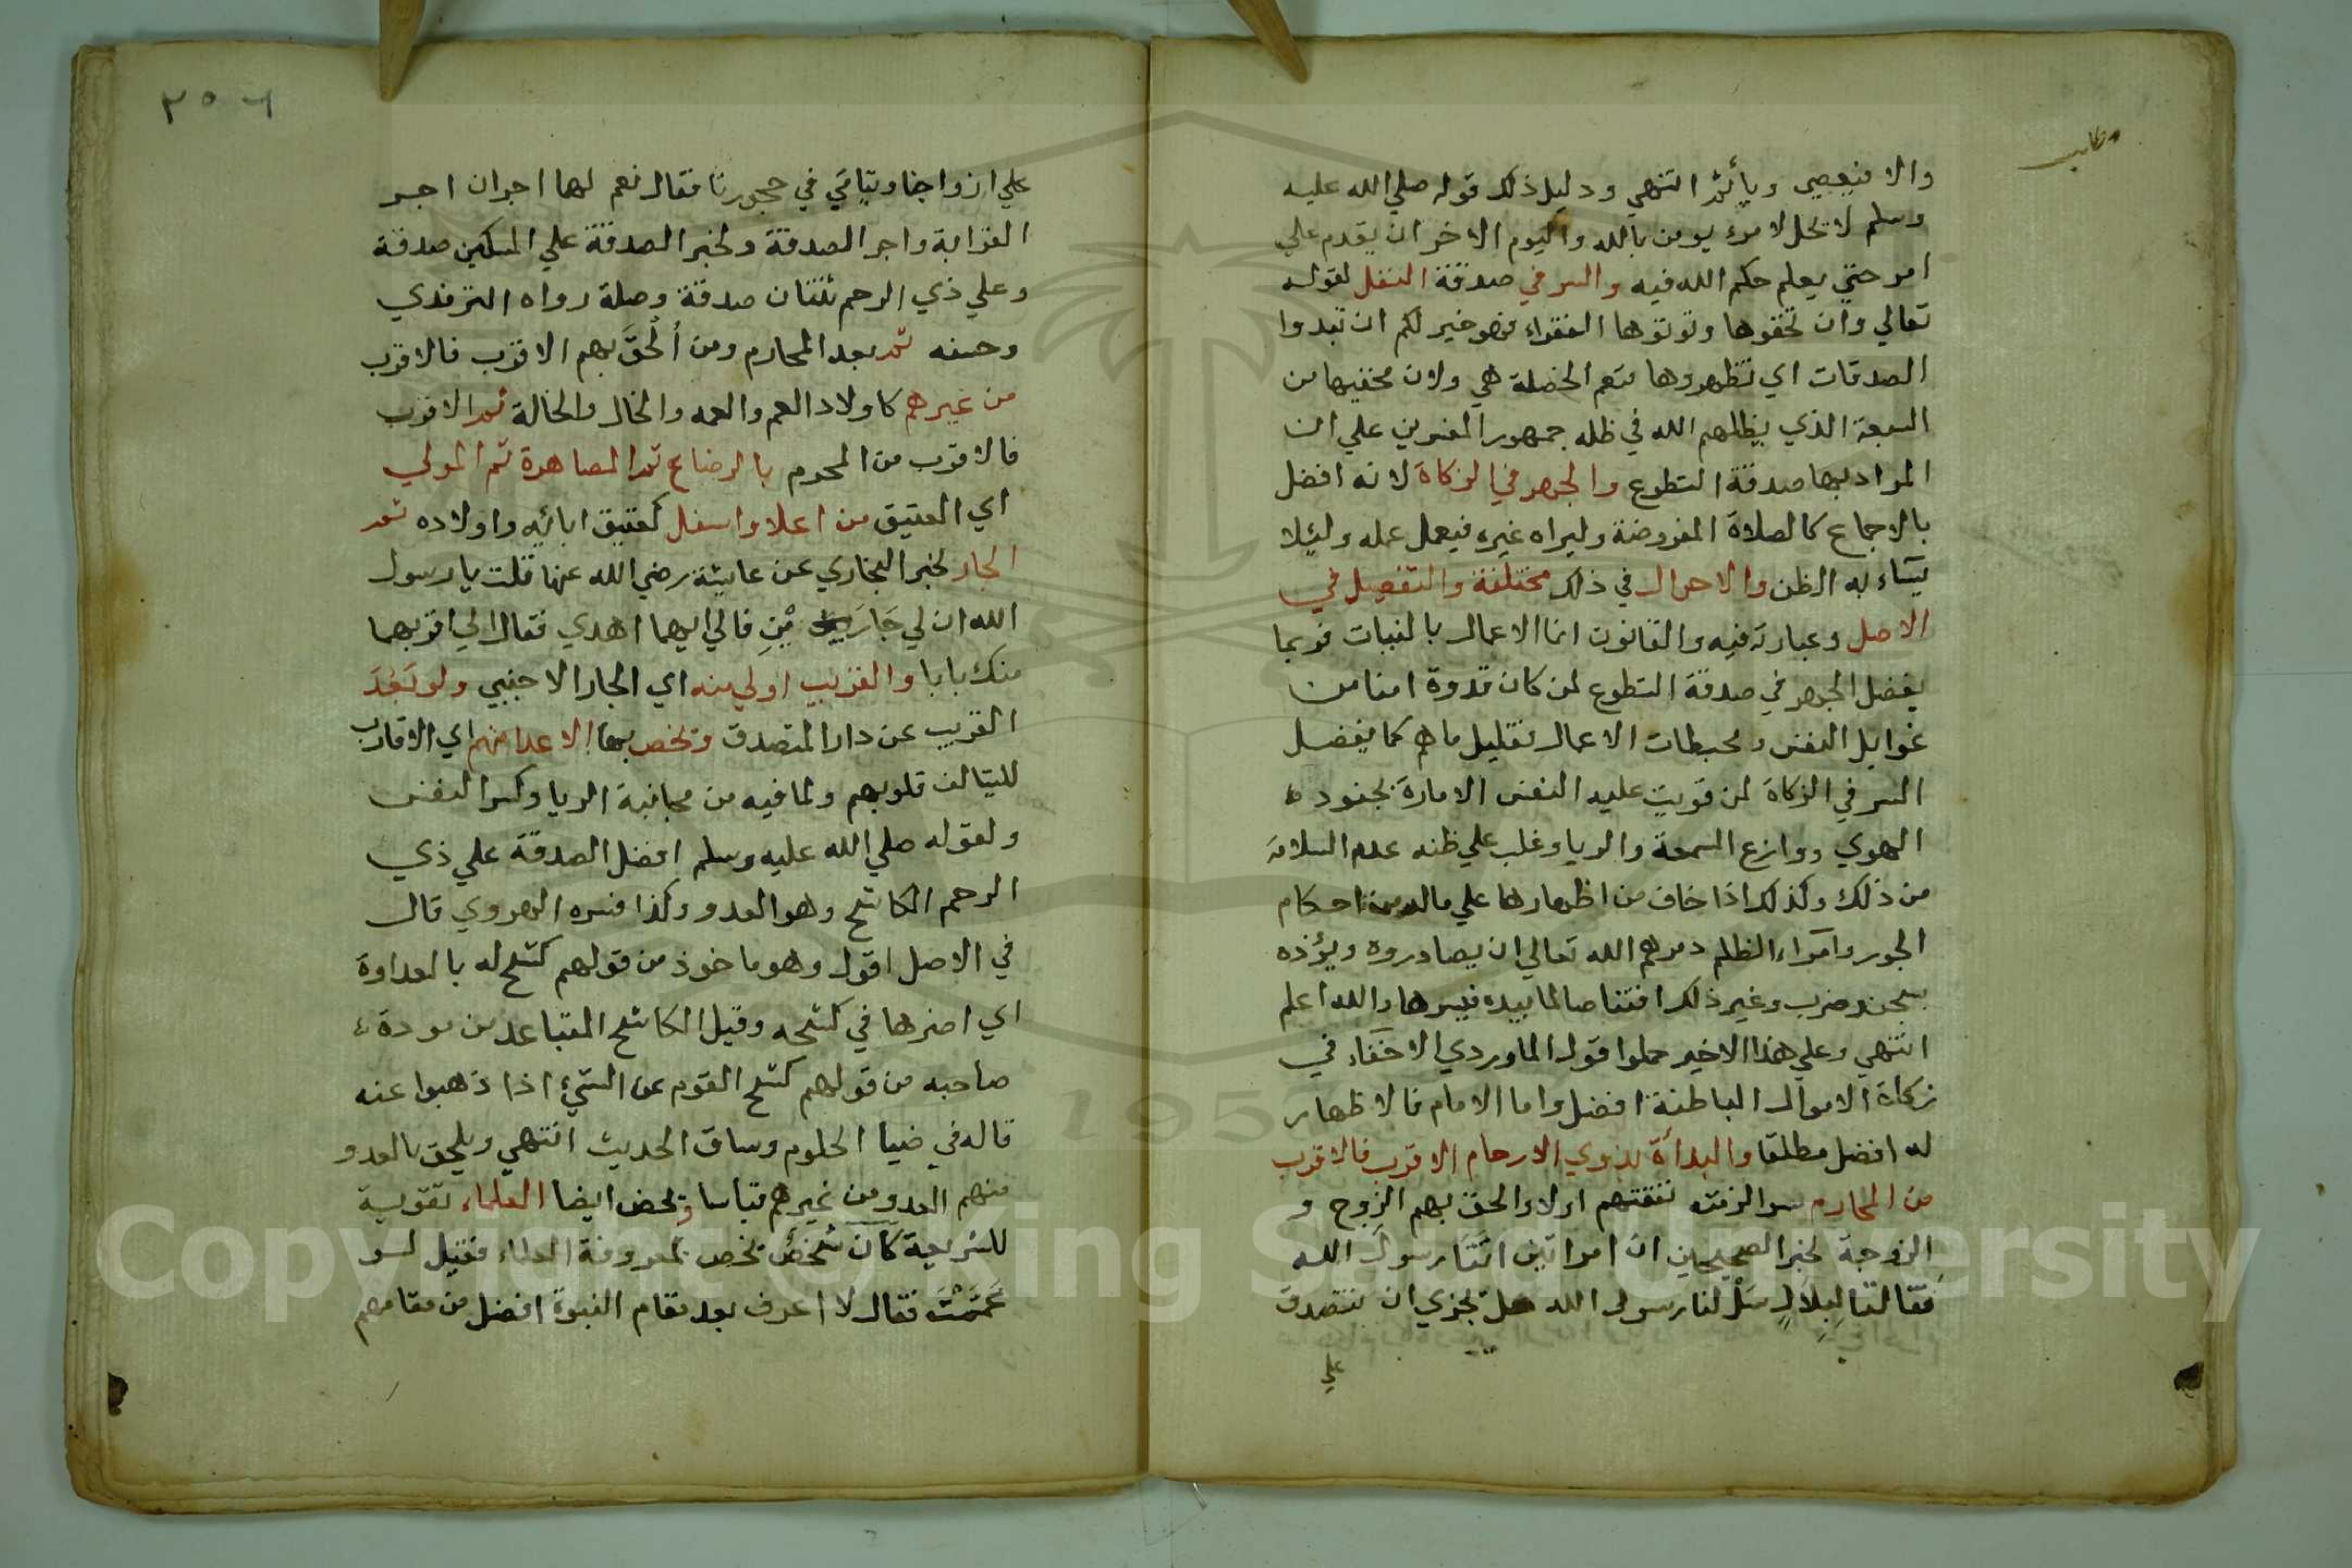 مطلب
والا فيعصي ويأثم انتهي ودليل ذلك قوله صلي الله عليه
وسلم لا يحل لامرء يومن بالله واليوم الاخر ان يقدم علي
امر حتي يعلم حكم الله فيه والسر في صدقة النفل لقوله
تعالي وان تخفوها وتوتوها الفقراء فهو خير لكم ان تبدوا
الصدقات اي تظهروها فنعم الخصلة هي ولان مخفيها من
السبعة الذي يظلهم الله في ظله جمهور المفسرين علي ان
المراد بها صدقة التطوع والجهر في الزكاة لانه افضل
بالاجماع كالصلاة المفروضة وليراه غيره فيعمل عمله وليلا
يساء به الظن والاحوال في ذلك مختلفة والتفصيل في
الاصل وعبارته فيه والقانون انما الاعمال بالنيات فربما
يفضل الجهر في صدقة التطوع لمن كان قدوة امنا من
غوايل النفس ومحبطات الاعمال وقليل ما هم كما يفضل
السر في الزكاة لمن قويت عليه النفس الامارة بجنود
الهوي ووازع السمعة والريا وغلب علي ظنه عدم السلامة
من ذلك وكذلك اذا خاف من اظهارها علي ماله من احكام
الجور وامراء الظلم دمرهم الله تعالي ان يصادروه ويؤذه
بسجن وضرب وغير ذلك افتناصا لما بيده فيسرها والله اعلم
انتهي وعلي هذا الاخير حملوا قول الماوردي الاخفاء في
زكاة الاموال الباطنة افضل واما الامام فالاظهار
له افضل مطلقا والبدأة بذوي الارحام الاقرب فالاقرب
من المحارم سوا لزمته نفقتهم اولا والحق بهم الزوج و
الزوجة لخبر الصحيحين ان امراتين اتتا رسول الله
فقالتا لبلال سل لنا رسول الله هل يجزي ان نتصدق
علي
٢٥٦
علي ازواجنا ويتامي في حجورنا فقال نعم لها اجران اجر
القرابة واجر الصدقة ولخبر الصدقة علي المسكين صدقة
وعلي ذي الرحم ثنتان صدقة وصلة رواه الترمذي
وحسنه ثم بعد المحارم ومن ألحق بهم الاقرب فالاقرب
من غيرهم كاولاد العم والعمه والخال والخالة ثم الاقرب
فالاقرب من المحرم بالرضاع ثم المصاهرة ثم المولي
اي العتيق من اعلا واسفل كعتيق ابائه واولاده ثم
الجار لخبر البخاري عن عايشة رضي الله عنها قلت يا رسول
الله ان لي جارين فالي ايهما اهدي فقال الي اقربهما
منك بابا والقريب اولي منه اي الجار الاجنبي ولو بعد
القريب عن دار المتصدق وتخص بها الاعدا منهم اي الاقارب
لليتالف قلوبهم ولما فيه من مجانبة الريا وكسر النفس
ولقوله صلي الله عليه وسلم افضل الصدقة علي ذي
الرحم الكاشح وهو العدو وكذا فسره الهروي قال
في الاصل اقول وهو ماخوذ من قولهم كشح له بالعداوة
اي اضمرها في كشحه وقيل الكاشح المتباعد من مودة
صاحبه من قولهم كشح القوم عن الشيء اذا ذهبوا عنه
قاله في ضيا الحلوم وساق الحديث انتهي ويلحق بالعدو
منهم العدو من غيرهم قياسا ويخص ايضا العلماء تقوية
للشريعة كان شخص يخص بمعروفة العلماء فقيل لو
عممت فقال لا اعرف بعد مقام النبوة افضل من مقامهم
Copyright © King Saud University
1957